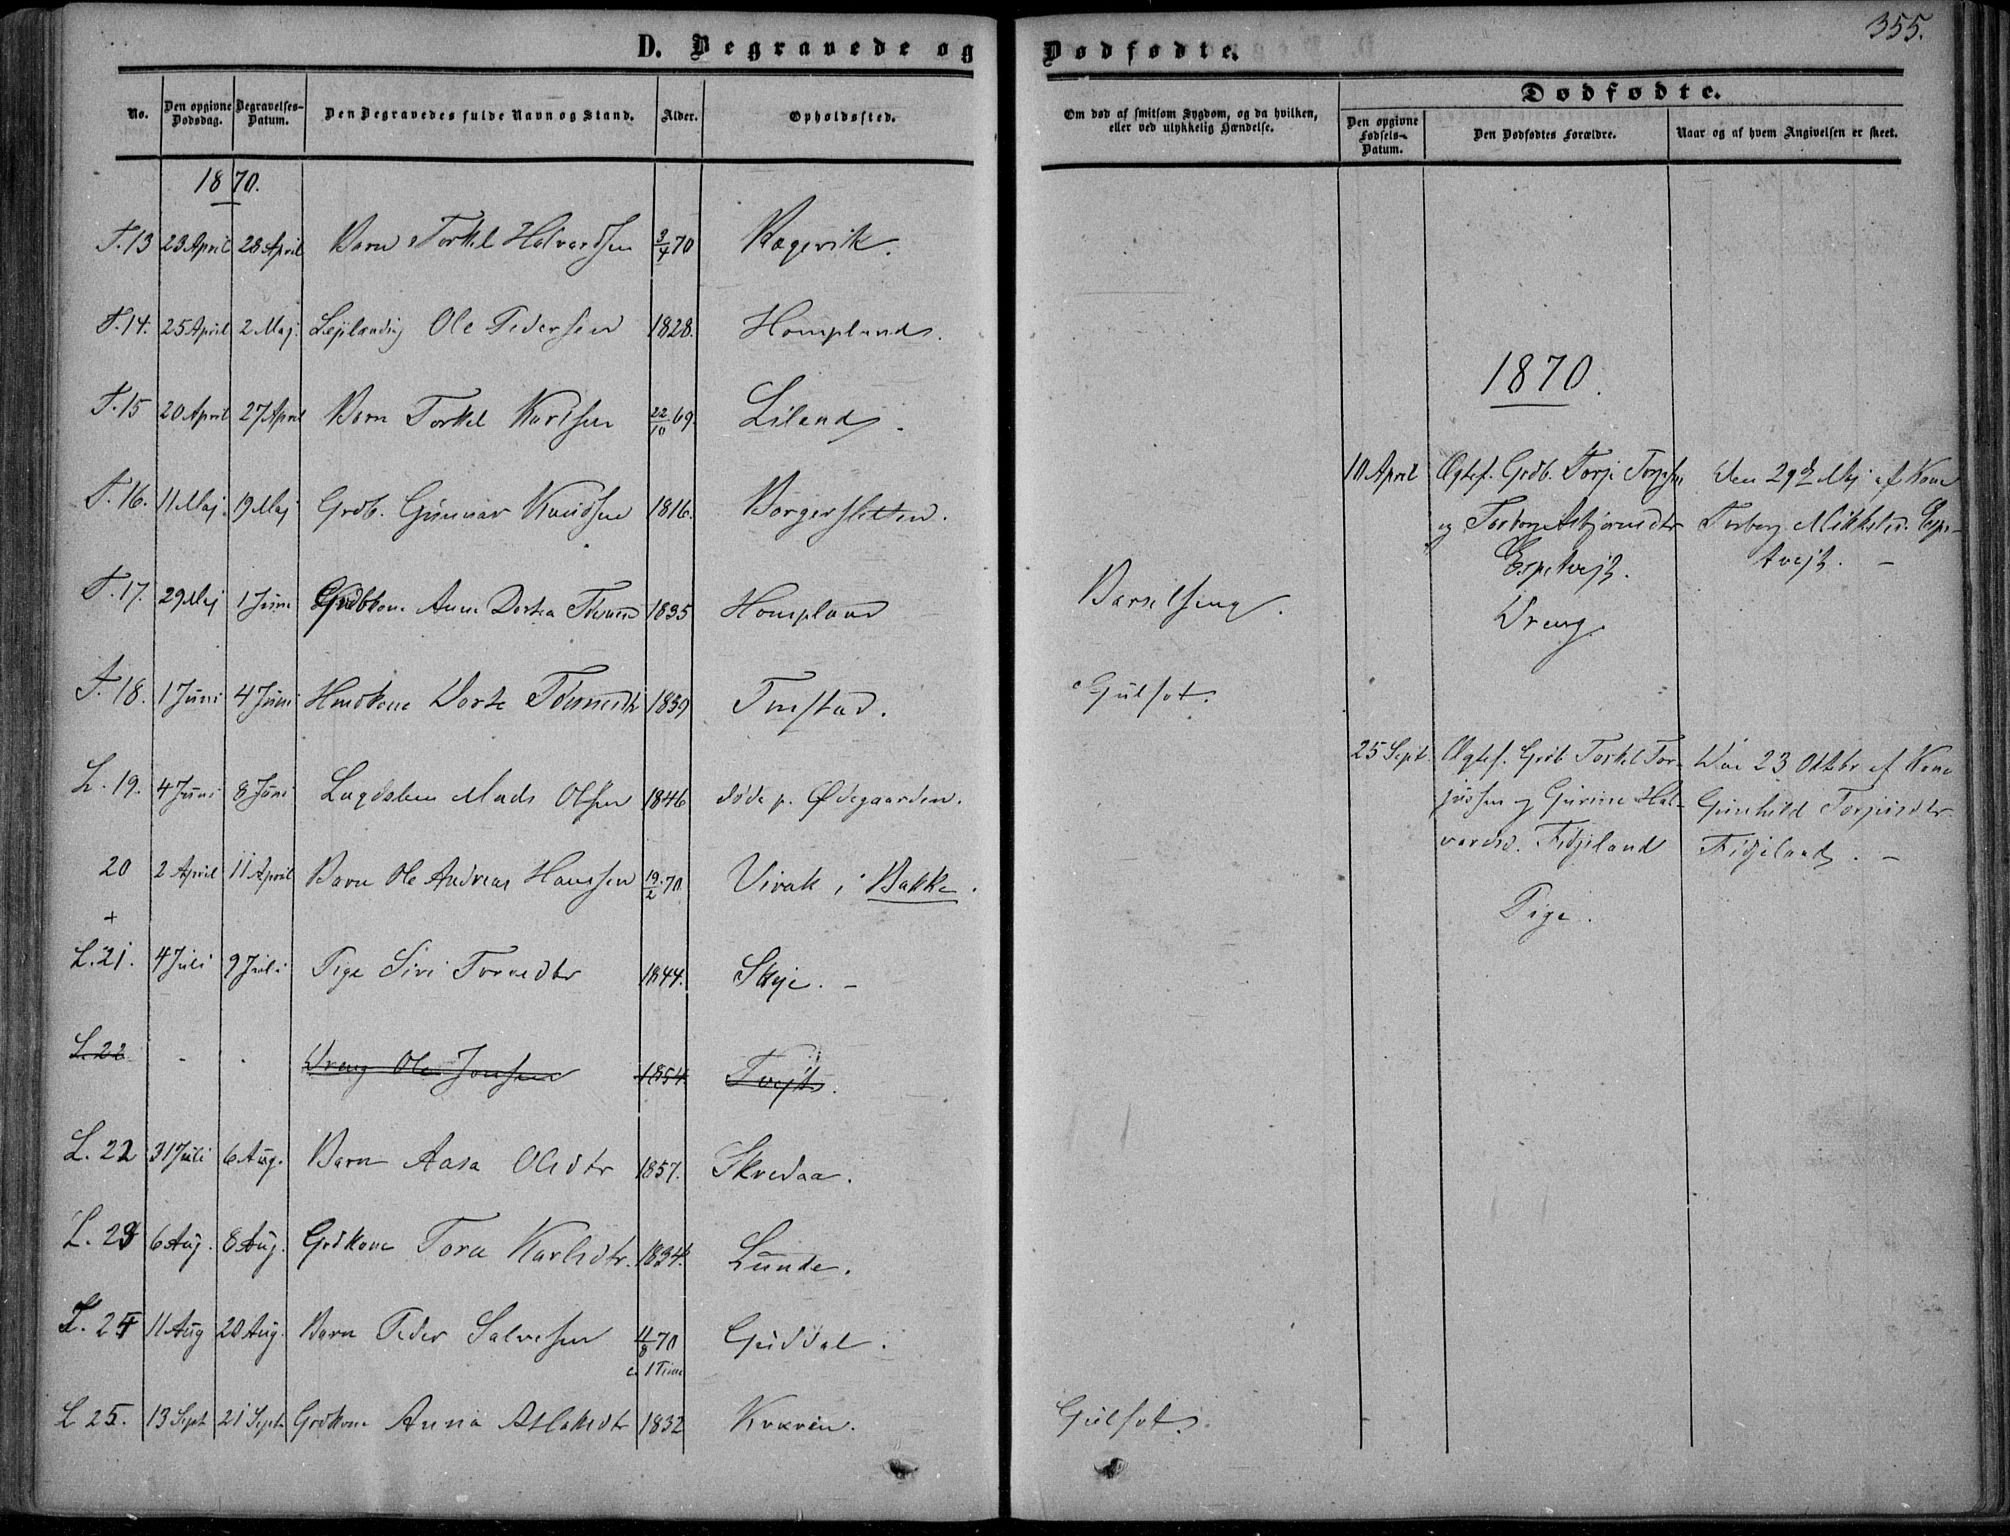 355.
D. Begravede og Dødfødte.
No.
Den opgivne Dødsdag.
Begravelses-Datum.
Den Begravedes fulde Navn og Stand.
Alder.
Opholdssted.
Om død af smitsom Sygdom, og da hvilken,
eller ved ulykkelig Hændelse.
Dødfødte.
Den opgivne Fødsels-Datum.
Den Dødfødtes Forældre.
Naar og af hvem Angivelsen er skeet.
1870.
F. 13 23 April 28 April Barn Torkel Halvordsen 3/4 70
F. 14. 25 April 2 Maj. Lejlænding Ole Pedersen 1828. Hompland.
F. 15 20 April 27 April Barn Torkel Karlsen 22/10 69. Liland.
F. 16. 11 Maj. 19 Maj Grdb. Gunnar Knudsen 1816. Borgersletten.
F. 17. 29 Maj 1 Juni Grdbkone Anne Dortea 1835 Hompland Barselseng.
F. 18. 1 Juni 4 Juni Husmkone Dorte 1839 Tonstad. Gulsot.
L. 19. 4 Juni 8 Juni Lægdslem Mads Olsen 1846 døde p. Ødegaarden.
20 2 April 11 April Barn Ole Andreas Hanssen 19/2 70. Virak i Bakke.
+
L. 21. 4 Juli 9 Juli Pige Siri 1844. Skeje. -
L. 22 Dreng Ole Jonsen 1854 Tvejt.
L. 22 31 Juli 6 Aug. Barn Aasa Olsdtr 1857. Skredaa.
L. 23 6 Aug. 8 Aug. Grdkone Tora Karlsdtr. 1834. Lunde.
L. 24 11 Aug 20 Aug. Barn Peder Salvesen 11/8 70 Guddal.
c. 1 Time
L 25. 13 Sept 21 Sept Grdkone Anna Aslaksdtr 1832 Kvæven. Gulsot.
1870.
10 April Ægtef. Grdb. Torje Torjesen
og Torborg Asbjørnsdtr
Espetvejt.
Dreng.
Den 29de Maj af Kone
Torborg Mikkelsd. Espe-
tvejt. -
25 Sept. Ægtef. Grdb Torkel Tor-
jussen og Gurine Hal-
vordsd. Fidjeland
Pige.
Den 23 Oktbr af Kone
Gunhild Torjusdtr
Fidjeland. -